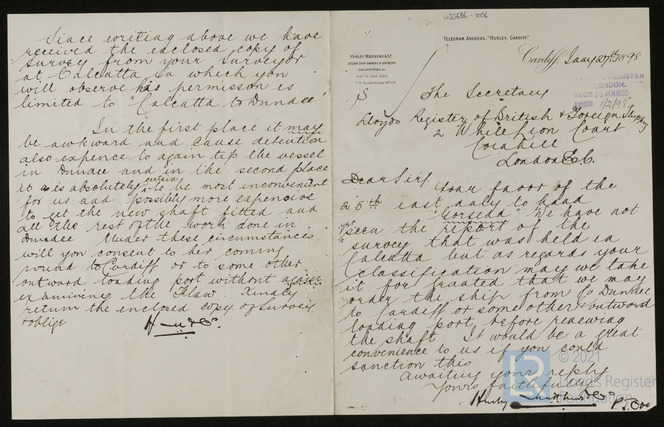 W33686-0006
TELEGRAM ADDRESS, "HURLEY, CARDIFF."
HURLEY, MATTHEWS & Co
Cardiff, Jany 27th 1898
LONDON.
1/2/98
The Secretary
Lloyds Register of British & Foreign Shipping
2 White Lion Court
Cornhill
London E.C.
Dear Sir/
Your favor of the
25th inst. duly to hand
"Gorsedd" We have not
yet seen the report of the
survey that was held in
Calcutta but as regards your
classification may we take
it for granted that we may
order the ship from Dundee
to Cardiff or some other outward
loading port, before renewing
the shaft It would be a great
convenience to us if you could
sanction this
Awaiting your reply
Yours faithfully
Hurley Matthews & Co
P.T.O.
Since writing above we have
received the enclosed copy of
survey from your surveyor
at Calcutta in which you
will observe his permission is
limited to "Calcutta to Dundee"
In the first place it may
be awkward and cause detention
also expence to again tip the vessel
in Dundee and in the second place
it is absolutely certain to be most inconvenient
for us and possibly more expensive
to get the new shaft fitted and
all the rest of the work done in
Dundee Under these circumstances
will you consent to her coming
round to Cardiff or to some other
outward loading port without again
examining the flaw Kindly
return the enclosed copy of survey
& oblige
H M & Co.
© 2021
Lloyd's Register